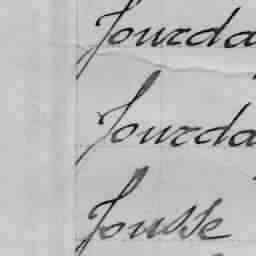 Jourda
Jourda
Jousse